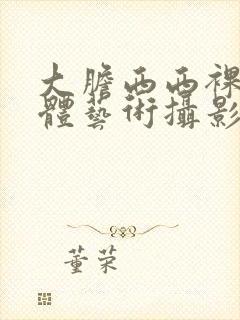 大膽西西裸
體藝術攝影
董荣